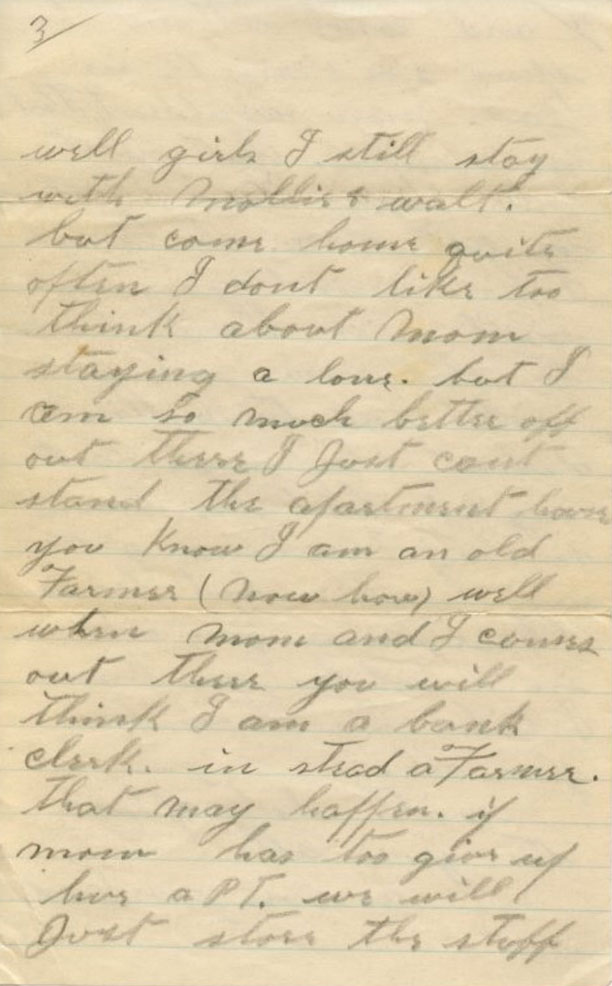 3/
well girls I still stay
with Mollie & walt.
but come home quite
often I dont like too
think about Mom
staying a lone. but I
am so much better off
out there I Just cant
stand the apartment house
you Know I am an old
Farmer (now how) well
when Mom and I comes
out there you will
think I am a bank
clerk. in stead a Farmer.
that may happen. if
mom has too give up
her aPT. we will
Just store the stuff